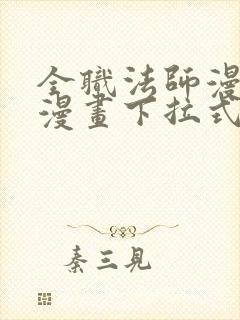 全職法師漫
漫畫下拉式
秦三見